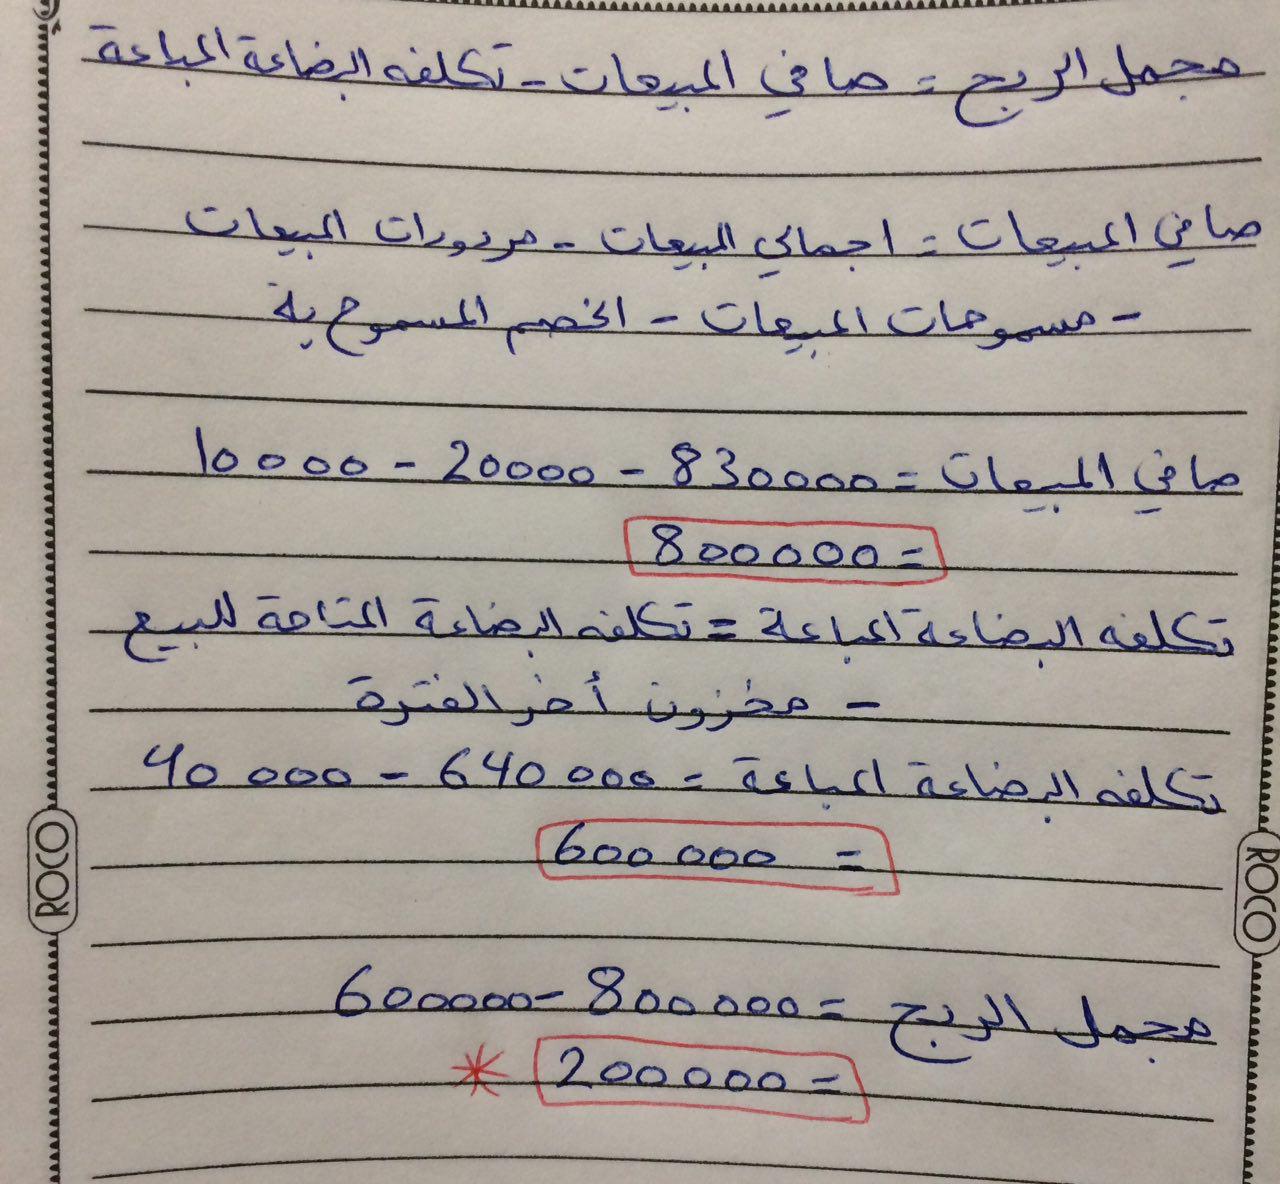 مجمل الربح = صافي المبيعات - تكلفه البضاعة المباعة
صافي المبيعات = اجمالي المبيعات - مردودات المبيعات
- مسموحات المبيعات - الخصم المسموح بة
صافي المبيعات = 830000 - 20000 - 10000
= 800000
تكلفه البضاعة المباعة = تكلفه البضاعة المتاحة للبيع
- مخزون أخر الفترة
تكلفه البضاعة المباعة = 640000 - 40000
= 600000
ROCO
ROCO
مجمل الربح = 800000 - 600000
= 200000 *